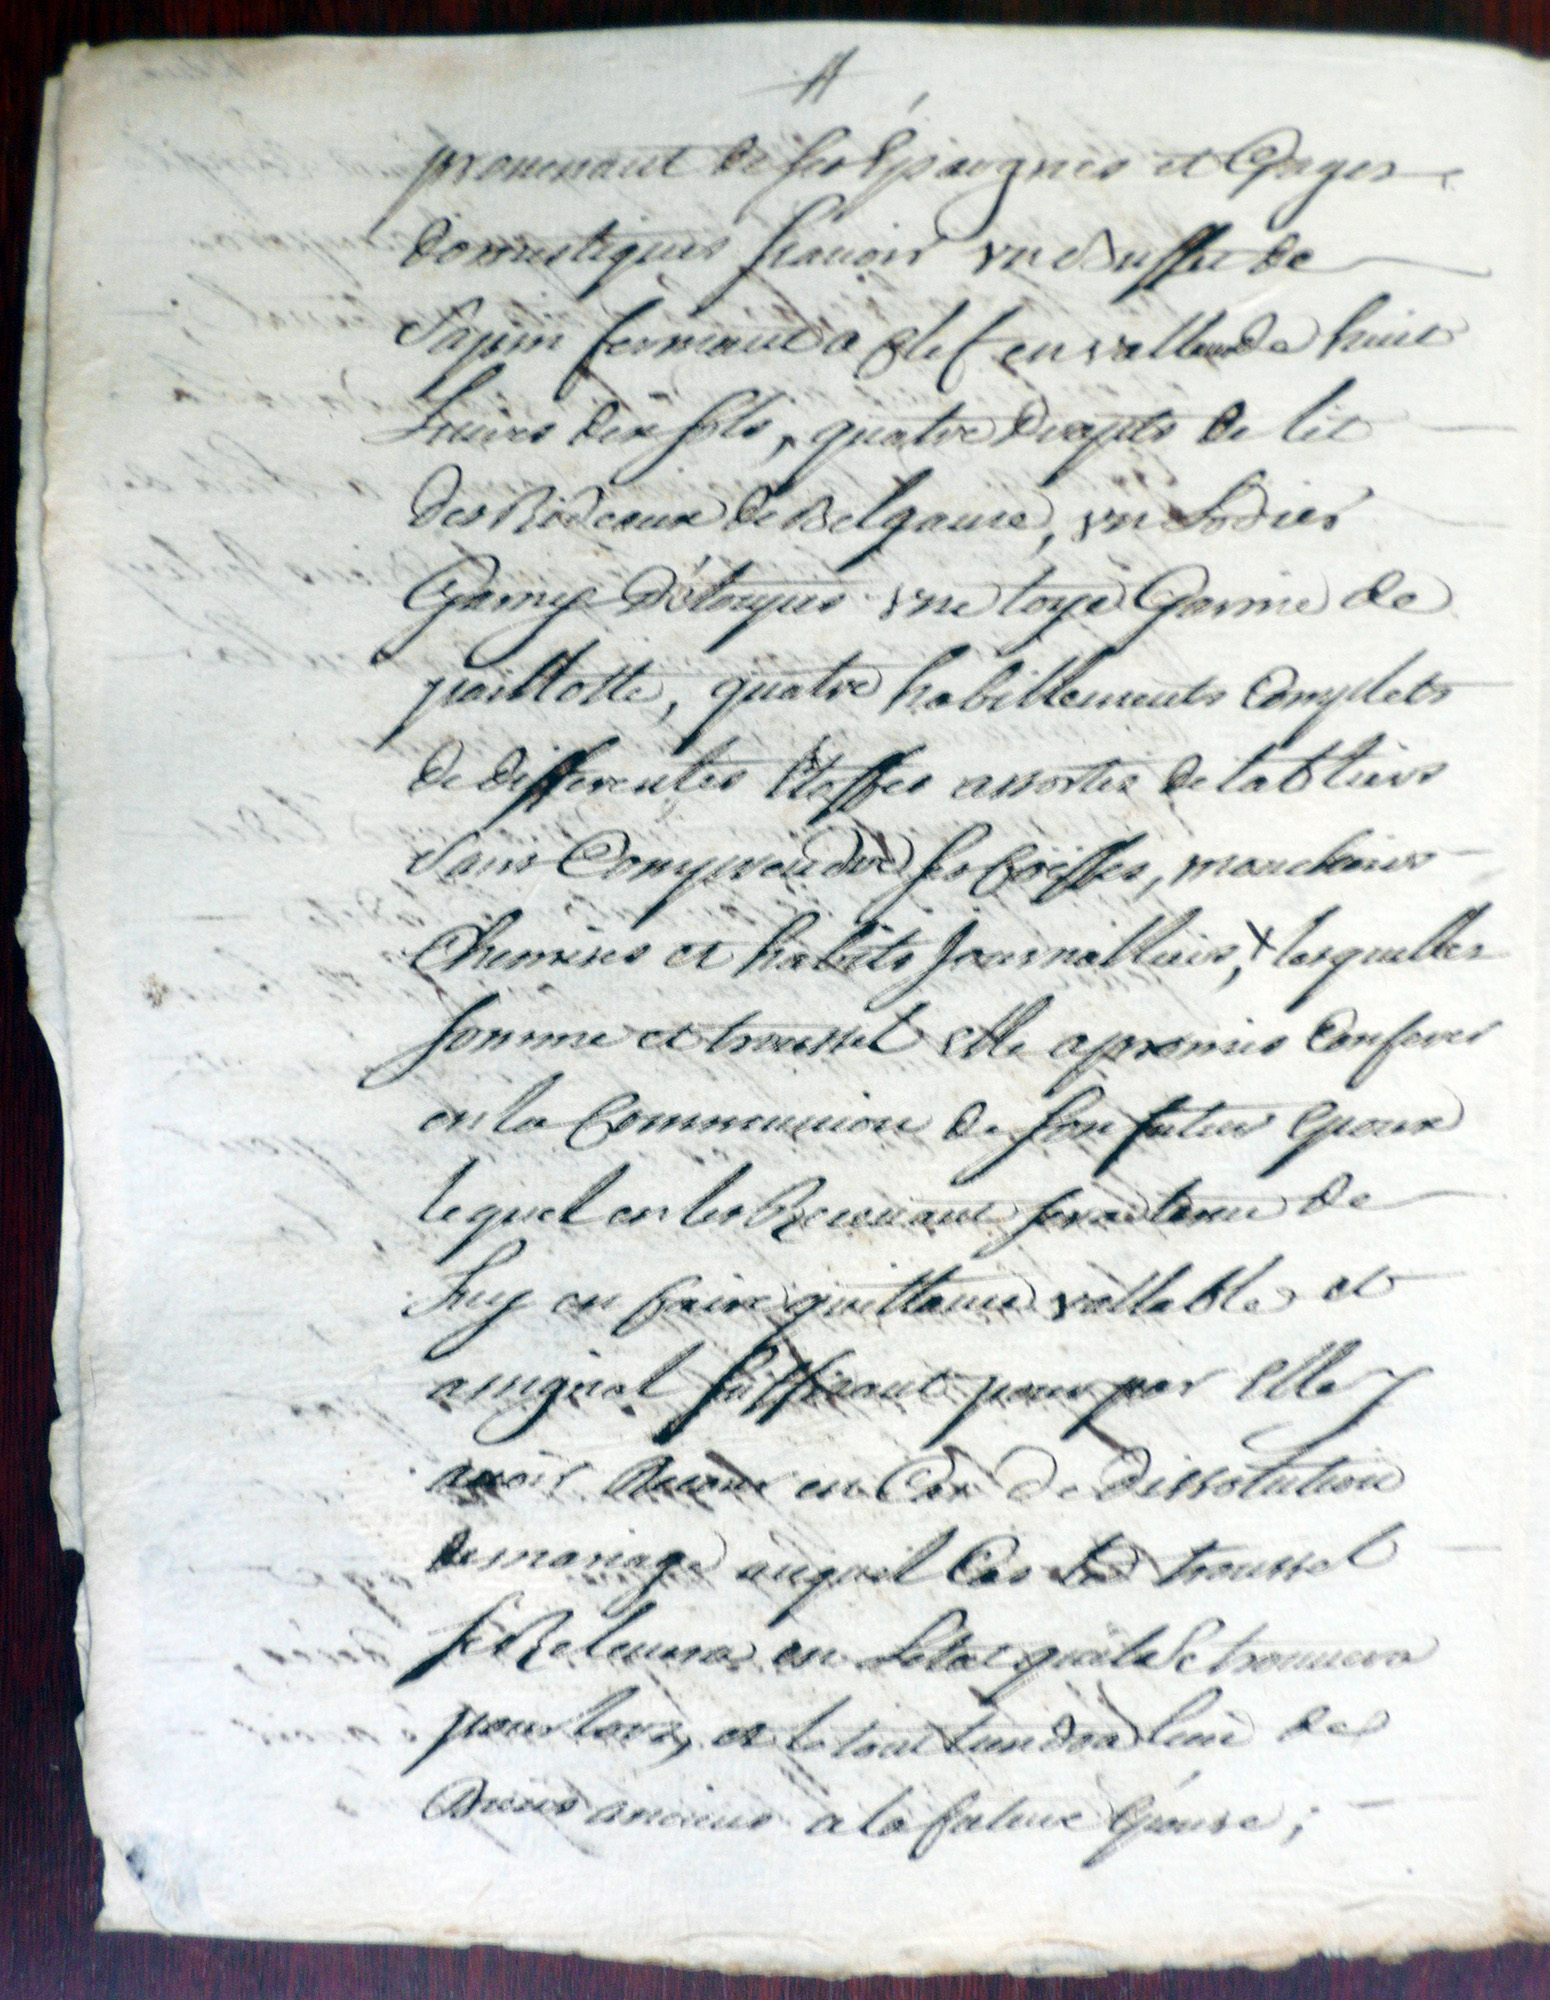 provenant de ses Epargnes et Gages
domestiques scavoir vn Buffet de
Sapin fermant a clef en valleur de huit
Livres dix sols, quatre drapts de lit
des Rideaux de Belgame, vn Lodier
Garny d'étoupes vne toye Garnie de
paillotte, quatre habillements Complets
de differentes Etoffes assorties de tabliers
Sans Comprendre ses Coiffes, mouchoirs
Chemises et habits Journalliers, lesquelles
somme et troussel Elle a promis Conferer
en la Communion de son futur Epoux
lequel en les Recevant sera tenu de
Luy en faire quittance vallable et
assignal suffisant pour par Elle y
avoir Recour en Cas de dissolution
de mariage auquel Cas led troussel
se Relevera en Létat quil se trouvera
pour lors, et le tout tiendra lieu de
Biens anciens a la future Epouse;